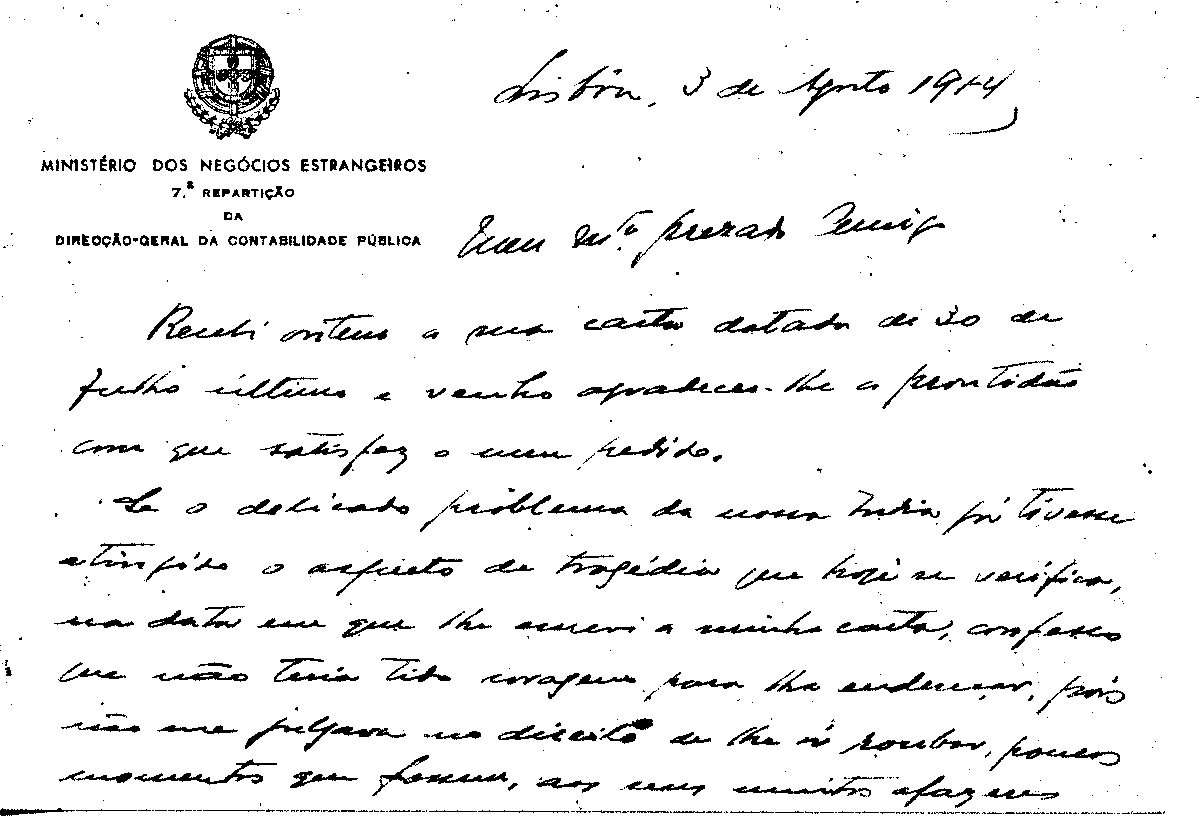 Lisbôa, 3 de Agosto 1954
MINISTÉRIO DOS NEGÓCIOS ESTRANGEIROS
7.ª REPARTIÇÃO
DA
DIRECÇÃO-GERAL DA CONTABILIDADE PÚBLICA
Meu mto. prezado Amigo
Recebi ontem a sua carta datada de 30 de
Julho último e venho agradecer-lhe a prontidão
com que satisfez o meu pedido.
Se o delicado problema da nossa India já tivesse
atingido o aspecto de tragédia que hoje se verifica,
na data em que lhe escrevi a minha carta, confesso
que não teria tido coragem para lha endereçar, pois
não me julgava no direito de lhe ir roubar, poucos
momentos que fossem, aos seus muitos afazeres